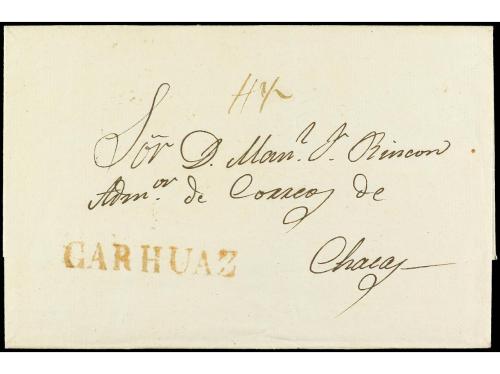 Sôr D. Man.l J. Rincon
Adm.or de Correos de
Chacas
CARHUAZ